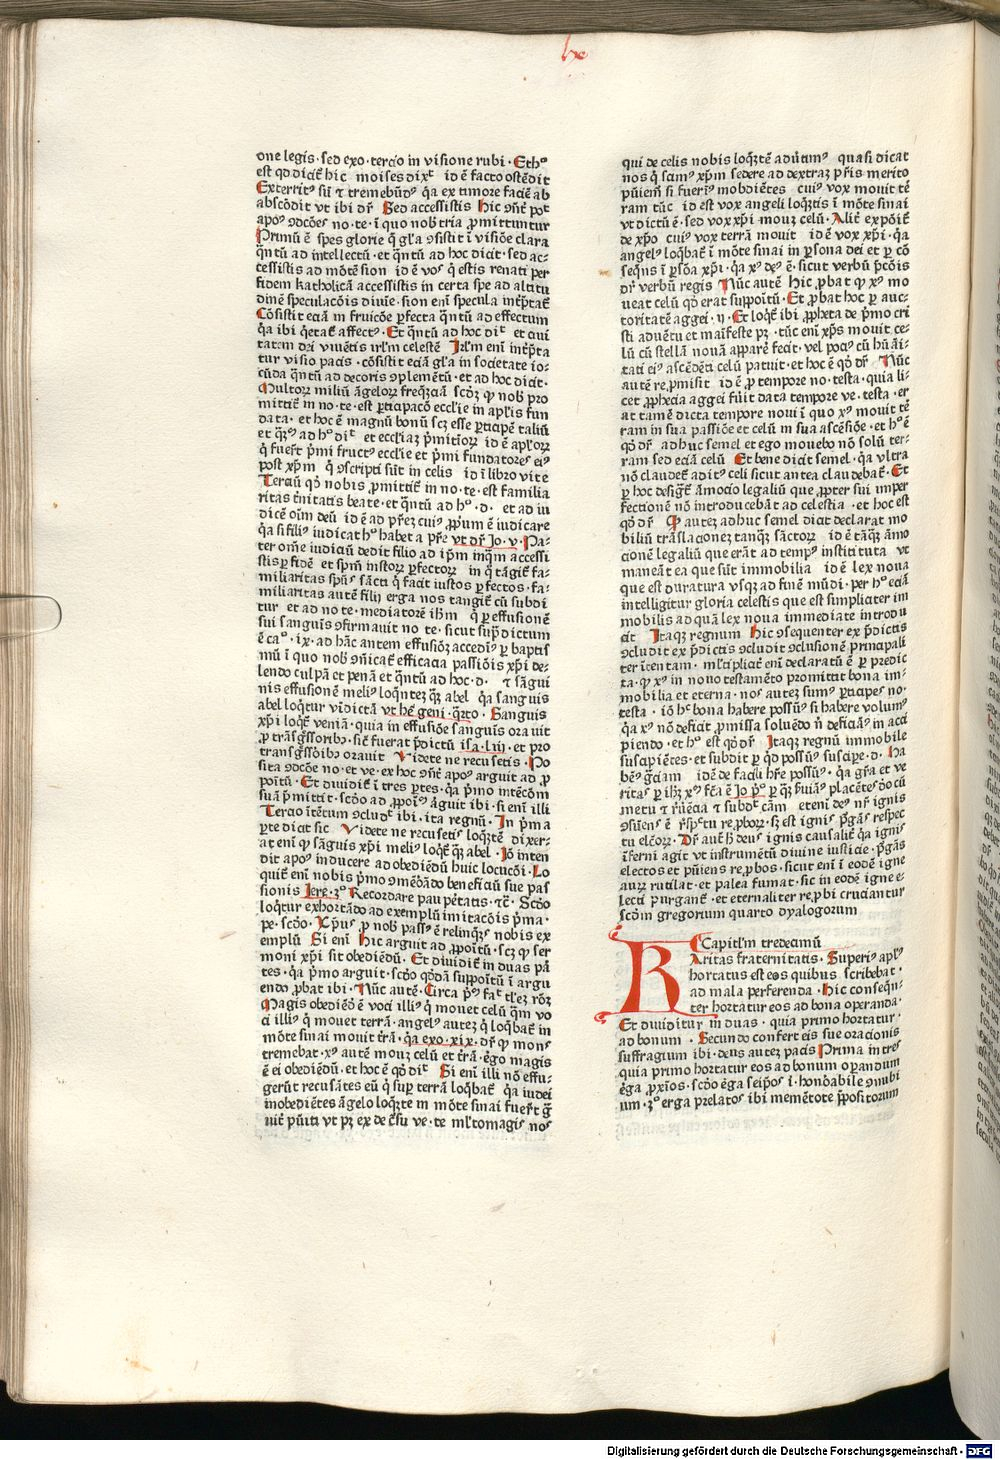 lx
one legis · sed exo · tercio in visione rubi · Etħꝰ
est qđ dicit hic moises dixᵗ id ē facto ostēdit
Exterritꝰ sū ⁊ tremebūdꝰ q̄a ex timore faciē ab
abscōdit vt ibi dr̄ Sed accessistis Hic ꝯn̄t poſt
apoꝰ ꝯdcōes no · te · ī quo nob tria ꝓmittuntur
Primū ē spes glorie q̄ gl̄a ꝯsistit ī visiōe clara
q̄ntū ad intellectū · et q̄ntū ad hoc dicit · sed ac-
cessistis ad mōtē sion id ē voꝰ q̄ estis renati per
fidem katholicā accessistis in certa spe ad altitu
dinē speculacōis diuie · sion eni specula intēp̄tat̄
Cōsistit eciā m fruicōe ꝑfecta q̄ntū ad effectum
q̄a ibi q̄etat̄ affectꝰ · Et q̄ntū ad hoc diᵗ et ciui
tatem dei viuētis irl̄m celestē Irl̄m eni intēp̄ta
tur visio pacis · cōsistit eciā gl̄a in societate io-
cūda q̄ntū ad decoris ꝯplemētū · et ad hoc dicit ·
Multoꝝ miliū āgeloꝝ freq̄zciā scōz ꝙ nob pro
mittit̄ m no · te · est ꝑticipacō eccl̄ie in apl̄is fun
data · et hoc ē magnū bonū scz esse ꝑticipē taliū
et q̄ꝛꝰ ad hᵒ diᵗ et eccl̄iaz p̄mitioꝝ id ē apl̄oꝝ
q̄ fuer̄t p̄mi fructꝰ eccl̄ie et p̄mi fundatores eiꝰ
post xp̄m q̄ ꝯscripti sūt in celis id ī libro vite
Terciū qᵒ nobis ꝓmittit̄ in no · te · est familia
ritas t̄nitatis beate · et q̄ntū ad hᵒ · d · et ad iu
dicē oīm deū id ē ad pr̄ez cuiꝰ ꝓpⁱum ē iudicare
q̄a si filiꝰ iudicat hᵒ habet a pr̄e vt dr̄ Jo · v · Pa-
ter om̄e iudiciū dedit filio ad ip̄m inq̄m accessi
stis ꝑ fidē et spm̄ iustoꝝ ꝑfectoꝝ in q̄ tāgit̄ fa-
miliaritas spūs sācti q̄ facit iustos ꝑfectos · fa-
miliaritas autē filij erga nos tangit̄ cū subdi
tur et ad no te · mediatorē ihm̄ q̄ ꝑ effusionē
sui sanguis ꝯfirmauit no te · sicut sup̄dictum
ē caᵒ · ix · ad hāc antem effusiōz accediᵗ ꝑ baptis
mū ī quo nob ꝯn̄icat̄ efficacia passiōis xp̄i de-
lendo culpā et penā et q̄ntū ad hoc · d · ⁊ sāgui
nis effusionē meliꝰ loq̄ntez q̄ꝫ abel q̄a sanguis
abel loq̄tur vīdictā vt hē̄ geni · q̄rto · Sanguis
xp̄i loq̄t̄ veniā · quia in effusiōe sanguis orauit
ꝓ trāsgressorib⁊ · sic̄ fuerat p̄dictū isa · liij · et pro
transgressorib⁊ orauit Videte ne recusetis · Po
sita ꝯdcōe no · et ve · ex hoc ꝯn̄t apoꝰ arguit ad ꝓ
poītū · Et diuidit̄ ī tres ꝑtes · q̄a p̄mo intēcōm
suā p̄mittit · scd̄o ad ꝓpoīᵗū āguit ibi · si eni illi
Tercio ītētum ꝯcludᵗ ibi · ita regnū · In p̄ma
ꝑte dicat sic Videte ne recusetis loq̄tē dixer-
at eni ꝙ sāguis xp̄i meliꝰ loq̄t̄ q̄ꝫ abel · Iō inten
dit apoꝰ inducere ad obediēdū huic locucōi · Lo
quit̄ eni nobis p̄mo ꝯmēdādo beneficiū sue pas
sionis Jere · 3ᵒ Recordare paupētatis · ⁊c̄ · Scd̄o
loq̄tur exhortādo ad exemplū imitacōis p̄ma ·
pe · scd̄o · Xp̄us ꝓ nob passꝰ ē relinq̄ꝫs nobis ex
emplū Si eni Hic arguit ad ꝓpoītū · scz ꝙ ser
moni xp̄i sit obediēdū · Et diuidit̄ in duas pā
tes · q̄a p̄mo arguit · scd̄o qᵒdā suppoītū ī argu
endo ꝓbat ibi · Nūc autē · Circa pᵒ⁹ faᵗ tlēz rōꝫ
Magis obediēdo ē voci illiꝰ q̄ mouet celū q̄m vo
ci illiꝰ q̄ mouet terrā · angelꝰ autez q̄ loq̄bat̄ in
mōte sinai mouit tr̄ā · q̄a exo · xix · dr̄ ꝙ mons
tremebat · xꝰ autē mouz celū et tr̄ā · ēgo magis
ē ei obediēdū · et hoc ē qᵒ dīᵗ Si eni illi nō effu-
gerūt recusātes eū q̄ sup̄ terrā loq̄bat̄ q̄a iudei
inobediētes āgelo loq̄nte m mōte sinai fuer̄t g̅
uit̄ pūiti vt pz ex de cūsu ve · te ml̄tomagis nos
qui de celis nobis loq̄ꝫtē adūtimꝰ quasi dicat
nos q̄ scimꝰ xp̄m sedere ad dextraz pr̄is merito
pūiem̄ si fuerīꝰ īnobdiētes cuiꝰ vox mouit tē
ram tūc id est vox angeli loq̄ꝫtis ī mōte sinai
vt dictū ē · sed vox xp̄i mouz celū · Alit̄ expōit̄
de xp̄o cuiꝰ vox terrā mouit id ē vox xp̄i · q̄a
angelꝰ loq̄bat̄ ī mōte sinai in ꝑsona dei et ꝑ cō
seq̄ns ī ꝑsōa xp̄i · q̄a xꝰ deꝰ ē · sicut verbū p̄cōis
dr̄ verbū regis Nūc autē hic ꝓbat ꝙ xꝰ mo
ueat celū qᵒ erat suppoītū · Et ꝓbat hoc ꝑ auc-
toritatē aggei · ij · Et loq̄t̄ ibi ꝓpheta de p̄mo cri
sti aduētu et maīfeste pz · tūc eni xp̄s mouit ce-
lū cū stellā nouā apparē fecit · vel pociꝰ cū hūāi-
tati eiꝰ ascēdēti celū patuit · et hoc ē qᵒ dr̄ Nūc
autē repromisit id ē ꝓ tempore no · testa · quia li-
cet ꝓphecia aggei fuit data tempore ve · testa · er
at tamē dicta tempore noui ī quo xꝰ mouit tē
ram in sua passiōe et celū m sua ascēsiōe · et hᵒ ē
qᵒ dr̄ adhuc semel et ego mouebo nō solū ter-
ram sed eciā celū Et bene dicit semel · q̄a vltra
nō claudet̄ aditꝰ celi sicut antea claudebat̄ · Et
ꝑ hoc desigt̄ āmocio legaliū que ꝓpter sui imper
fectionē nō introducebāt ad celestia · et hoc est
qᵒ dr̄ Ꝙ autez adhuc semel dicit declarat mo
biliū trāslacionez tanq̄ꝫ sāctoꝝ id ē tāq̄ꝫ āmo
cionē legaliū que erāt ad tempꝰ instituta vt
maneāt ea que sūt immobilia id ē lex noua
que est duratura vsq̄ꝫ ad finē mūdi · per hᵒ eciā
intelligitur gloria celestis que est simpliciter im
mobilis ad quā lex noua immediate introdu
cit Itaqꝫ regnum Hic ꝯsequenter ex p̄dictis
ꝯcludit ex p̄dictis ꝯcludit ꝯclusionē principali
ter ītentam · ml̄tipliciᵗ eni declaratū ē ꝑ p̄edic
ta · ꝙ xꝰ in nouo testamēto promittit bona im-
mobilia et eterna · nos autez sumꝰ ꝑticipes no-
testa · iō hᵒs bona habere possūꝰ si habere volumꝰ
q̄a xꝰ nō deficit ꝓmissa soluēdo n̄ deficiāꝰ in acci
piendo · et hᵒ est qᵒ dr̄ Itaqꝫ regnū immobile
suscipiētes · et subdit ꝑ qᵒd possūꝰ suscipe · d · Ha
bēꝰ gr̄ciam id ē de facili hr̄e possūꝰ · q̄a gr̄a et ve
ritas ꝑ ihꝫ xꝰ fc̄a ē Jo pᵒ ꝑ q̄ꝫ ẜuiāꝰ placētes dō cū
metu ⁊ rūēcia ⁊ subdᵗ cām eteni deꝰ nr̄ ignis
ꝯsūēs ē rꝰpctu reꝓboꝝ · sꝫ est ignis p̄gās respec
tu elcōꝝ · Dr̄ autē h̄ deus ignis causalit̄ q̄a ignis
īferni agit vt instrumētū diuine iusticie · p̄gās
electos et pūiens reꝓbos · sicut eni ī eodē igne
auꝝ rutilat · et palea fumat · sic in eodē igne e-
lecti purgant̄ · et eternaliter reꝓbi cruciantur
scd̄m gregorium quarto dyalogorum
Capitl̄m tredecimū
KAritas fraternitatis · Superiꝰ aplꝰ
hortatus est eos quibus scribebat ·
ad mala perferenda · Hic consequē-
ter hortatur eos ad bona operanda ·
Et diuiditur in duas · quia primo hortatur
ad bonum · Secundo confert eis sue oracionis
suffragium ibi · deus autez pacis Prima in tres
quia primo hortatur eos ad bonum oꝑandum
ēga ꝓxīos · scd̄o ēga seip̄os ī · honōabile ꝯnubi
um · 3ᵒ erga prelatos ibi memētote p̄positorum
Digitalisierung gefördert durch die Deutsche Forschungsgemeinschaft - DFG